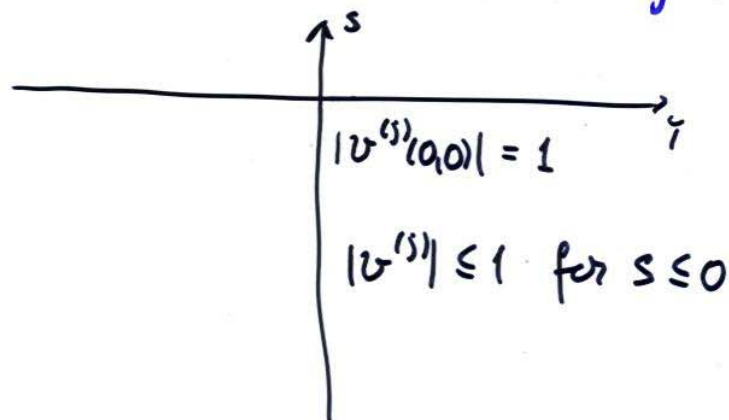 s
y
|v^(j)(0,0)| = 1
|v^(j)| ≤ 1 for s ≤ 0